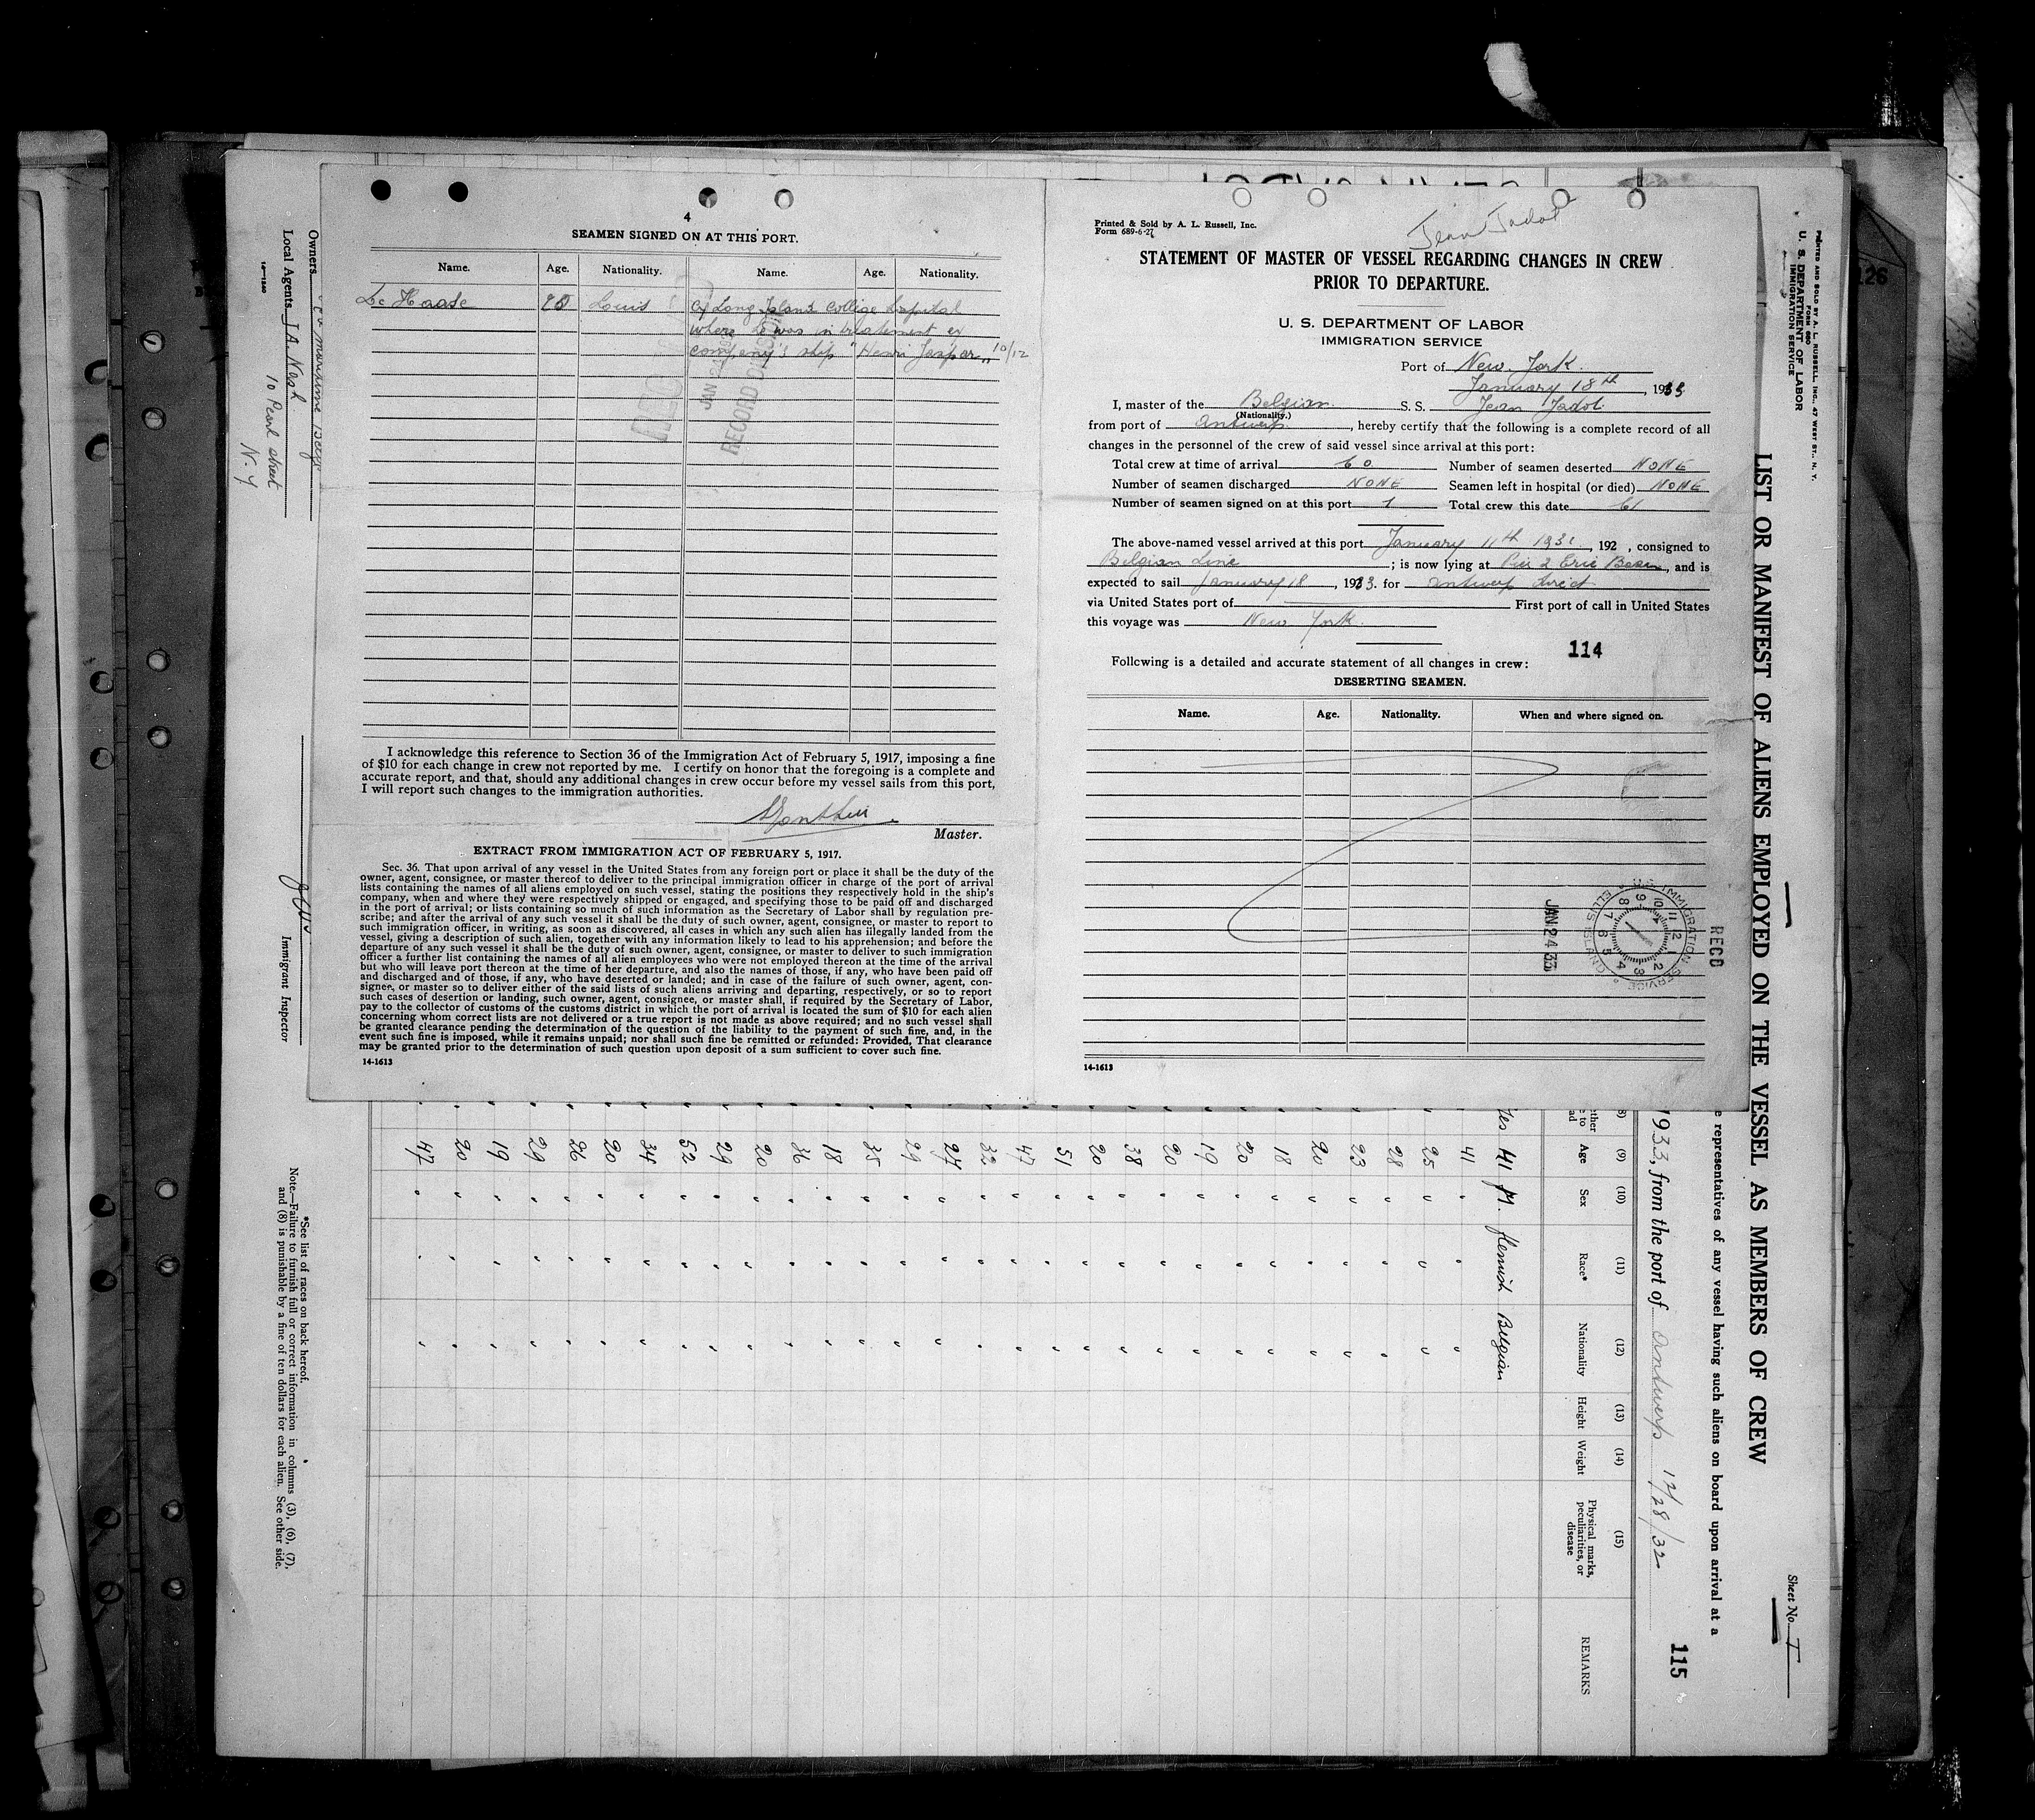 4
SEAMEN SIGNED ON AT THIS PORT.
Name. Age. Nationality. Name. Age. Nationality.
De Haase 20 Louis ex Long Island College hospital
where he was in treatment ex
company's ship "Henri Jaspar" 10/12
JAN 2
RECORD
I acknowledge this reference to Section 36 of the Immigration Act of February 5, 1917, imposing a fine
of $10 for each change in crew not reported by me. I certify on honor that the foregoing is a complete and
accurate report, and that, should any additional changes in crew occur before my vessel sails from this port,
I will report such changes to the immigration authorities.
Master.
EXTRACT FROM IMMIGRATION ACT OF FEBRUARY 5, 1917.
Sec. 36. That upon arrival of any vessel in the United States from any foreign port or place it shall be the duty of the
owner, agent, consignee, or master thereof to deliver to the principal immigration officer in charge of the port of arrival
lists containing the names of all aliens employed on such vessel, stating the positions they respectively hold in the ship's
company, when and where they were respectively shipped or engaged, and specifying those to be paid off and discharged
in the port of arrival; or lists containing so much of such information as the Secretary of Labor shall by regulation pre-
scribe; and after the arrival of any such vessel it shall be the duty of such owner, agent, consignee, or master to report to
such immigration officer, in writing, as soon as discovered, all cases in which any such alien has illegally landed from the
vessel, giving a description of such alien, together with any information likely to lead to his apprehension; and before the
departure of any such vessel it shall be the duty of such owner, agent, consignee, or master to deliver to such immigration
officer a further list containing the names of all alien employees who were not employed thereon at the time of the arrival
but who will leave port thereon at the time of her departure, and also the names of those, if any, who have been paid off
and discharged and of those, if any, who have deserted or landed; and in case of the failure of such owner, agent, con-
signee, or master so to deliver either of the said lists of such aliens arriving and departing, respectively, or so to report
such cases of desertion or landing, such owner, agent, consignee, or master shall, if required by the Secretary of Labor,
pay to the collector of customs of the customs district in which the port of arrival is located the sum of $10 for each alien
concerning whom correct lists are not delivered or a true report is not made as above required; and no such vessel shall
be granted clearance pending the determination of the question of the liability to the payment of such fine, and, in the
event such fine is imposed, while it remains unpaid; nor shall such fine be remitted or refunded: Provided, That clearance
may be granted prior to the determination of such question upon deposit of a sum sufficient to cover such fine.
14-1613
Printed & Sold by A. L. Russell, Inc.
Form 689-6-27
Jean Jadot
STATEMENT OF MASTER OF VESSEL REGARDING CHANGES IN CREW
PRIOR TO DEPARTURE.
U. S. DEPARTMENT OF LABOR
IMMIGRATION SERVICE
Port of New York
January 18th, 1933
I, master of the Belgian S. S. Jean Jadot
(Nationality.)
from port of Antwerp, hereby certify that the following is a complete record of all
changes in the personnel of the crew of said vessel since arrival at this port:
Total crew at time of arrival 60 Number of seamen deserted NONE
Number of seamen discharged NONE Seamen left in hospital (or died) NONE
Number of seamen signed on at this port 1 Total crew this date 61
The above-named vessel arrived at this port January 11th 193 , 192 , consigned to
Belgian Line ; is now lying at Pier 2 Erie Basin, and is
expected to sail January 18, 1933. for Antwerp direct
via United States port of First port of call in United States
this voyage was New York
114
Following is a detailed and accurate statement of all changes in crew:
DESERTING SEAMEN.
Name. Age. Nationality. When and where signed on.
RECD
JAN 24 33
U.S. IMMIGRATION SERVICE ELLIS ISLAND
12 1 2 3 4 5 6 7 8 9 10 11
14-1613
PRINTED AND SOLD BY A. L. RUSSELL, INC., 47 WEST ST., N. Y.
FORM 680
U. S. DEPARTMENT OF LABOR
IMMIGRATION SERVICE
126
Sheet No. 1
LIST OR MANIFEST OF ALIENS EMPLOYED ON THE VESSEL AS MEMBERS OF CREW
representatives of any vessel having such aliens on board upon arrival at a
115
1933, from the port of Antwerp 12/28/32
(9) (10) (11) (12) (13) (14) (15)
Age Sex Race* Nationality Height Weight Physical marks, peculiarities, or disease REMARKS
Yes 41 M. flemish Belgian
41 " " "
25 " " "
28 " " "
23 " " "
20 " " "
18 " " "
20 " " "
19 " " "
20 " " "
38 " " "
20 " " "
51 " " "
47 " " "
32 " " "
27 " " "
29 " " "
35 " " "
18 " " "
36 " " "
20 " " "
29 " " "
52 " " "
34 " " "
20 " " "
26 " " "
29 " " "
19 " " "
20 " " "
47 " " "
Owners maritime Belge
Local Agents J.A. Nash
10 Pearl street
N.Y
Immigrant Inspector
*See list of races on back hereof.
Note.—Failure to furnish full or correct information in columns (3), (6), (7),
and (8) is punishable by a fine of ten dollars for each alien. See other side.